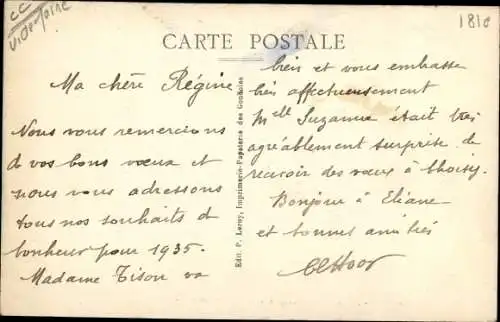 CARTE POSTALE
1810
Ma chère Régine
Nous vous remercions
de vos bons voeux et
nous vous adressons
tous nos souhaits de
bonheur pour 1935.
Madame Tison va
bien et vous embrasse
bien affectueusement
Melle Suzanne était très
agréablement surprise de
recevoir des vœux à Choisy.
Bonjour à Eliane
et bonnes amitiés
Edit. P. Leroy, Imprimerie-Papeterie des Gondoles